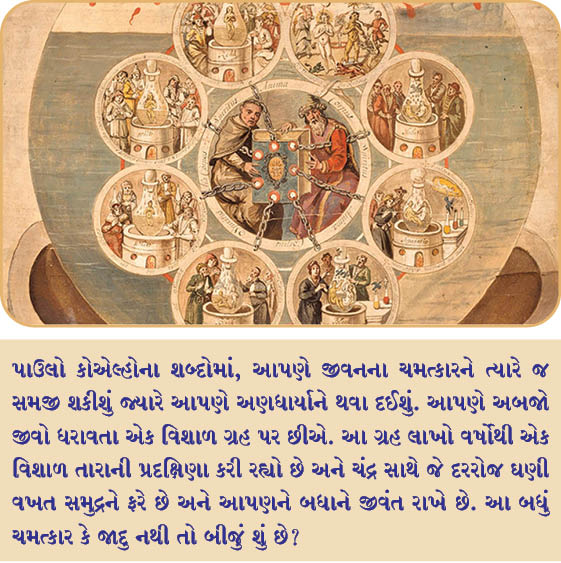 પાઉલો કોએલ્હોના શબ્દોમાં, આપણે જીવનના ચમત્કારને ત્યારે જ
સમજી શકીશું જ્યારે આપણે અણધાર્યાને થવા દઈશું. આપણે અબજો
જીવો ધરાવતા એક વિશાળ ગ્રહ પર છીએ. આ ગ્રહ લાખો વર્ષોથી એક
વિશાળ તારાની પ્રદક્ષિણા કરી રહ્યો છે અને ચંદ્ર સાથે જે દરરોજ ઘણી
વખત સમુદ્રને ફરે છે અને આપણને બધાને જીવંત રાખે છે. આ બધું
ચમત્કાર કે જાદુ નથી તો બીજું શું છે?